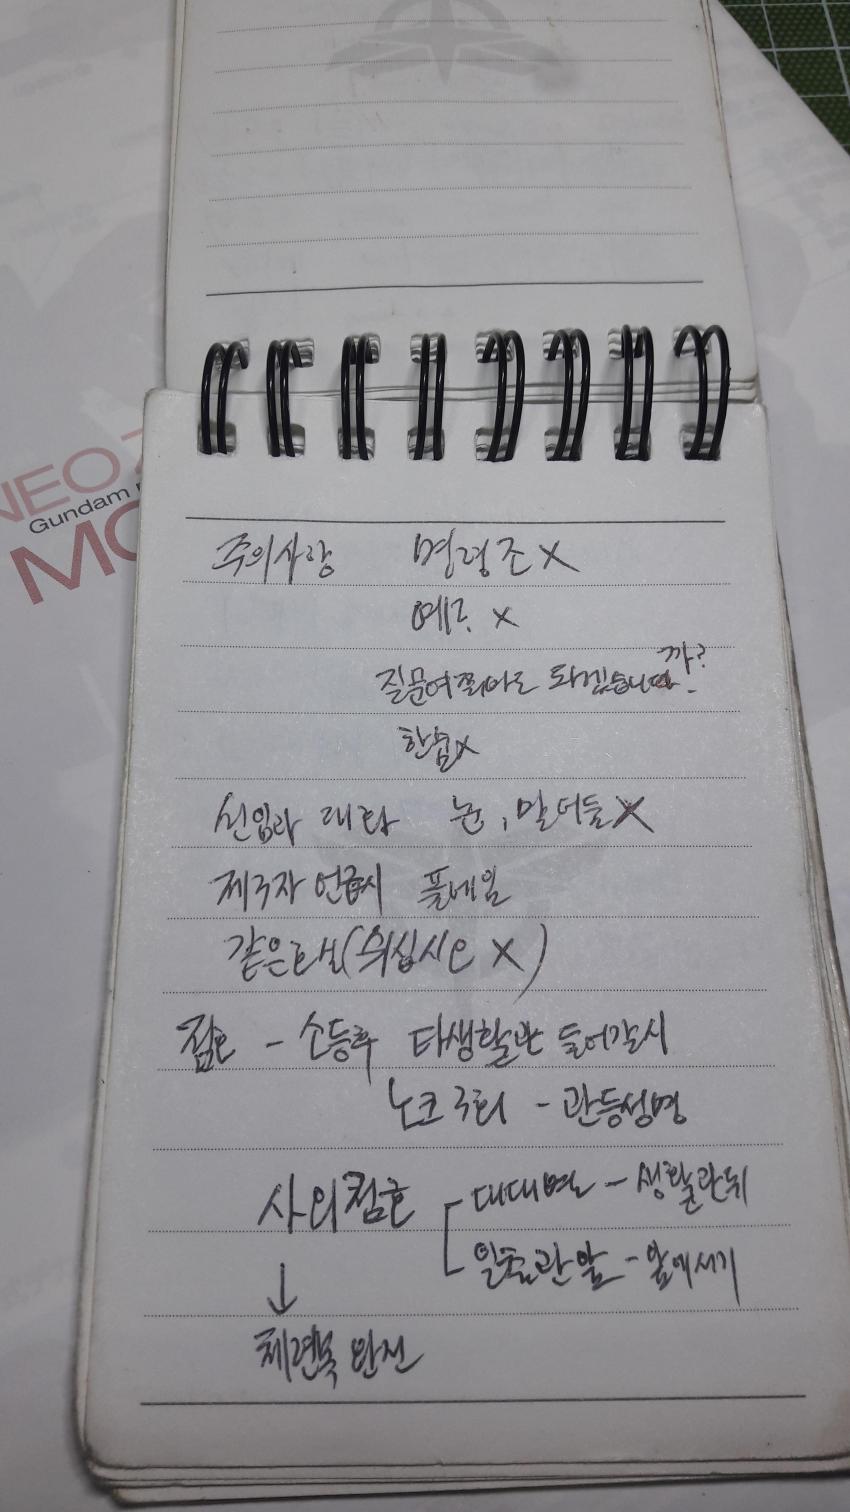 NEO Z
Gundam
MO
주의사항 명령조 X
예? X
질문여쭤봐도 되겠습니까?
한숨X
선임과 대화 눈, 말더듬 X
제3자 언급시 풀네임
같은호실(쉬십시오 X)
점호 - 소등후 타생활관 들어갈시
노크 3회 - 관등성명
사외점호 대대면 - 생활관뒤
앞 - 앞에서기
↓
체련복 완전